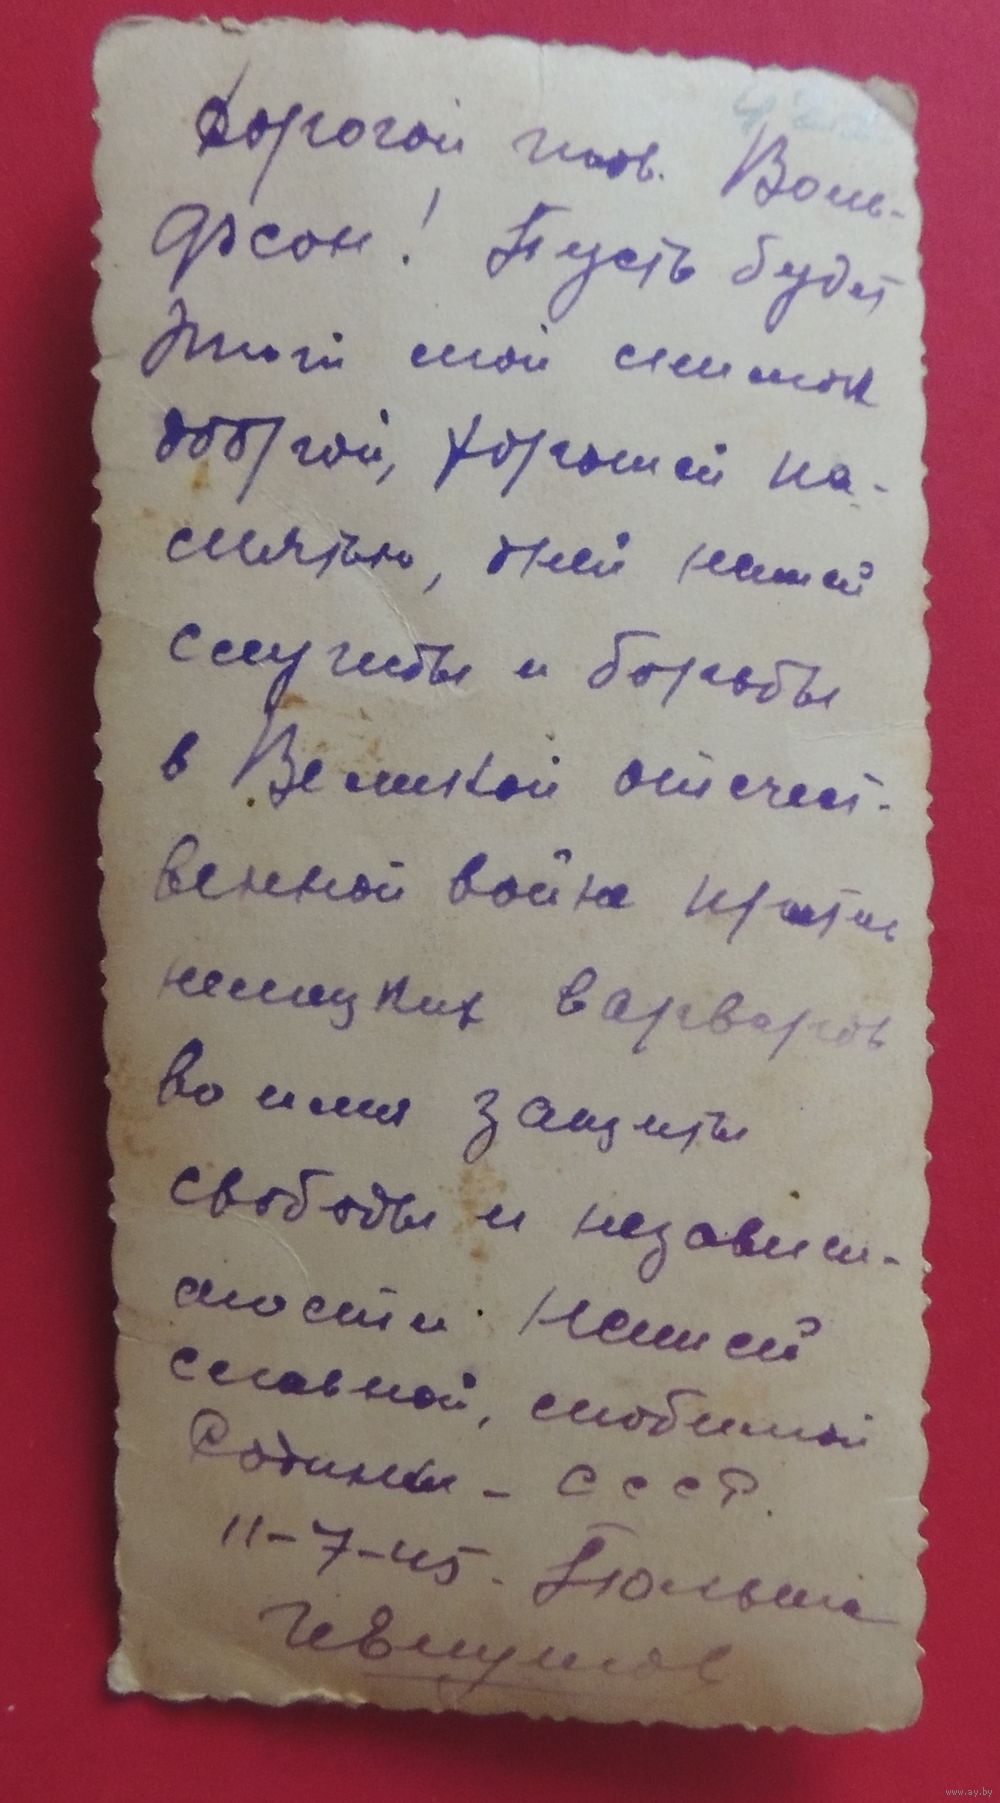 Дорогой тов. Воль-
фсон! Пусть будет
этой мой снимок
доброй, хорошей па-
смятью, дней нашей
службы и борьбы
в Великой отечест-
венной войне против
немецких варваров
во имя защиты
свободы и независи-
мости нашей
славной, любимой
Родины - СССР.
11-7-45. Польша
www.ay.by